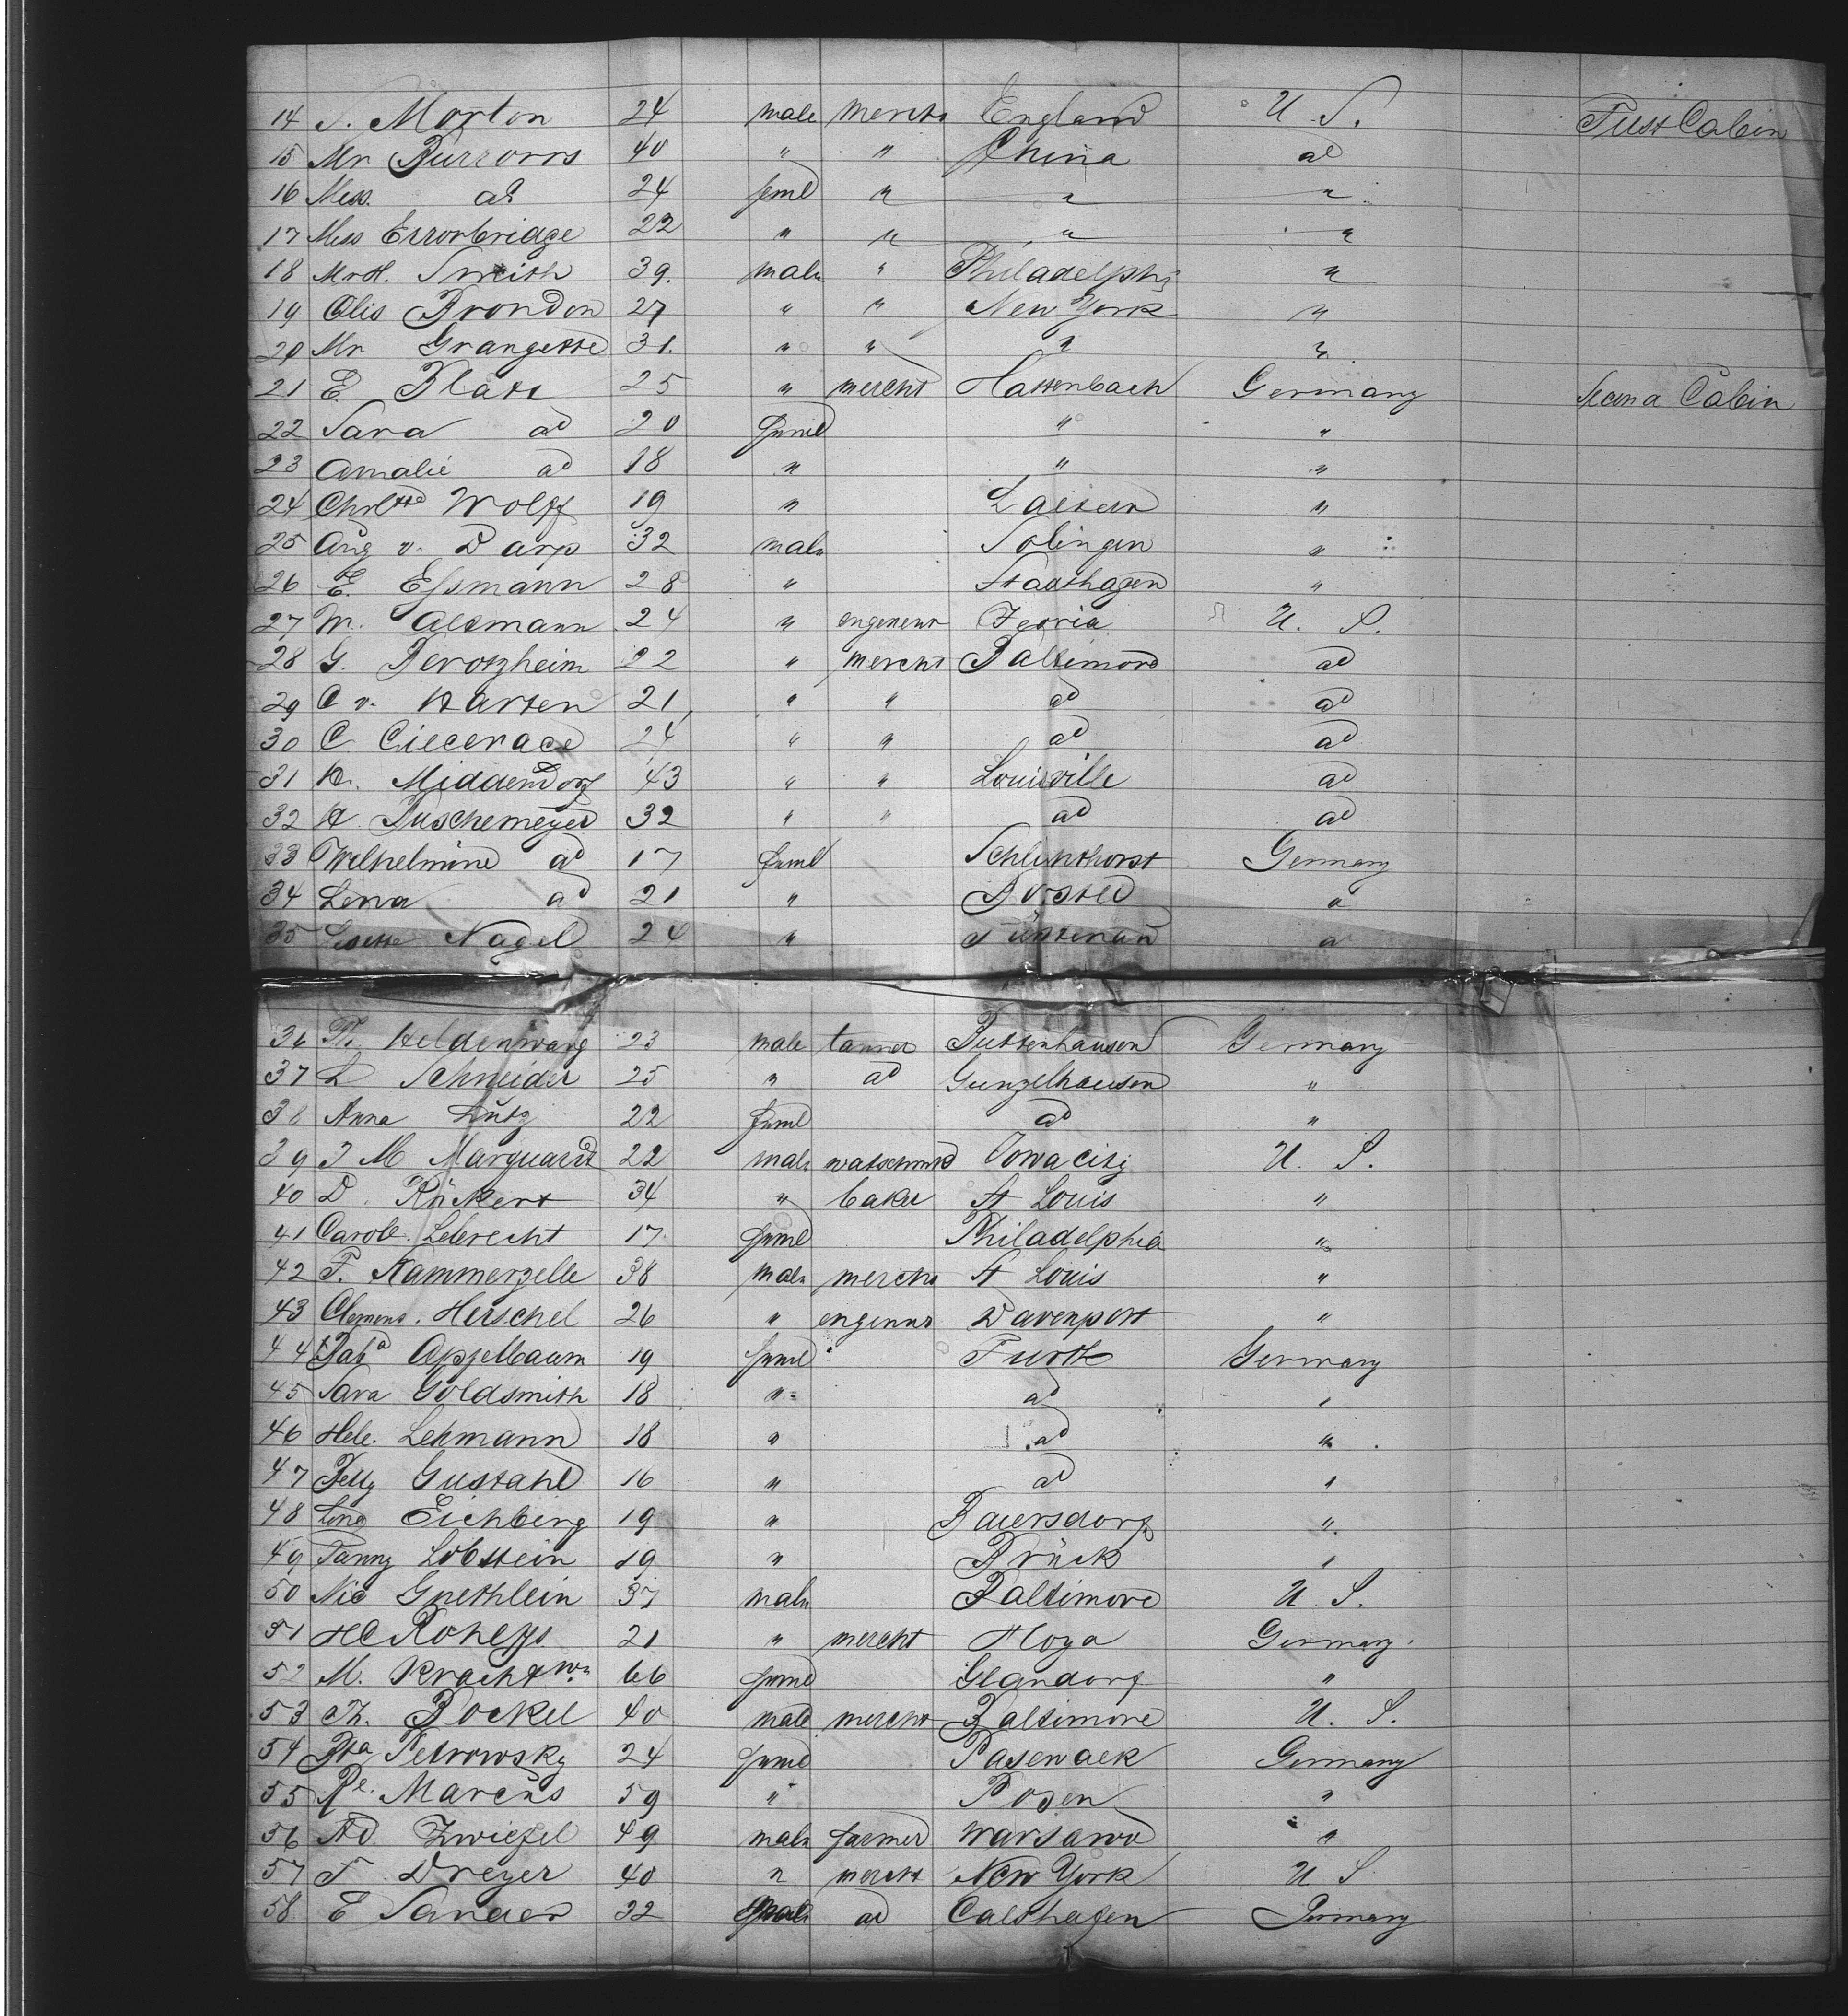 14 S. Morton 24 male mercht England U. S. First Cabin
15 Mr Burrows 40 " " China ad
16 Miss. ad 24 feml " " "
17 Miss Errorbridge 22 " " " "
18 Mr H. Smith 39. male " Philadelphia "
19 Olis Brondon 27 " " New York "
20 Mr Grangette 31. " " " "
21 E. Klatt 25 " mercht Hattenbach Germany Second Cabin
22 Sara ad 20 feml " "
23 Amalie ad 18 " " "
24 Wolff 19 " "
25 Aug v. Darp 32 male Solingen "
26 E. Essmann 28 " Stadthagen "
27 M. Altmann 24 " engeneur Peoria U. S.
28 G. Berotzheim 22 " mercht Baltimore ad
29 C v. Harten 21 " " ad ad
30 C 24 " " ad ad
31 H. Middendorf 43 " " Louisville ad
32 H. Buschemeyer 32 " " ad ad
33 Wilhelmine ad 17 feml Germany
34 Lena ad 21 " Borsted "
35 Lisette Nagel 24 " Fürstenau "
36 Th. Heldenwang 23 male tanner Buttenhausen Germany
37 L Schneider 25 " ad Gunzelhausen "
38 Anna Lutz 22 feml ad "
39 J M Marquardt 22 male Iowa City U. S.
40 D. Rückert 34 " baker St Louis "
41 Carole. Lebrecht 17 feml Philadelphia "
42 F. Kammerzelle 38 male mercht St Louis "
43 Clemens. Herschel 26 " engeneur Davenport "
44 Bab.a Appelbaum 19 feml Furth Germany
45 Sara Goldsmith 18 " ad "
46 Hele. Lehmann 18 " ad "
47 Betty Gustahl 16 " ad "
48 Lina Eichberg 19 " Baiersdorf "
49 Fanny Lobstein 19 " Brück "
50 Nic Gnethlein 37 male Baltimore U. S.
51 HC Rohlfs 21 " mercht Hoya Germany
52 M. Kracht Wn. 66 feml Glandorf "
53 Th. Bockel 40 male mercht Baltimore U. S.
54 Petrowsky 24 feml Pasewalk Germany
55 Marcus 59 " Posen "
56 Ad. Zwiefel 49 male farmer Warsawo "
57 F. Dreyer 40 " mercht New York U S.
58 E Sander 22 male ad Calshafen Germany